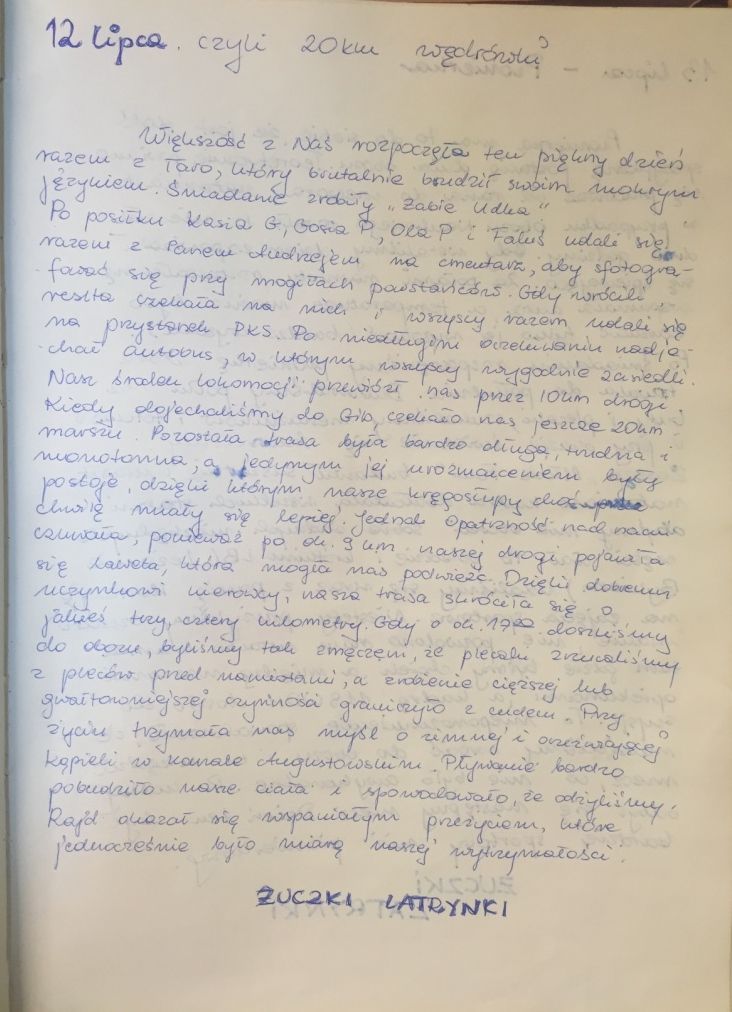 12 Lipca. czyli 20km wędrówka
Większość z Nas rozpoczęła ten piękny dzień
razem z Taro, który brutalnie budził swoim mokrym
językiem. Śniadanie zrobiły „Żabie Udka”
Po posiłku Kasia G, Gosia P, Ola P i Faluś udali się
razem z Panem Andrzejem na cmentarz, aby sfotogra-
-fować się przy mogiłach powstańców. Gdy wrócili,
reszta czekała na nich i wszyscy razem udali się
na przystanek PKS. Po niedługim oczekiwaniu nadje-
-chał autobus, w którym wszyscy wygodnie zasiedli.
Nasz środek lokomocji przewiózł nas przez 10km drogi.
Kiedy dojechaliśmy do Gib, czekało nas jeszcze 20km
marszu. Pozostała trasa była bardzo długa, trudna i
monotonna, a jedynym jej urozmaiceniem były
postoje, dzięki którym nasze kręgosłupy choć
chwilę miały się lepiej. Jednak Opatrzność nad nami
czuwała, ponieważ po ok. 9 km naszej drogi pojawiła
się laweta, która mogła nas podwieźć. Dzięki dobremu
uczynkowi kierowcy, nasza trasa skróciła się o
jakieś trzy, cztery kilometry. Gdy o ok. 17⁰⁰ doszliśmy
do obozu, byliśmy tak zmęczeni, że plecaki zrzucaliśmy
z pleców przed namiotami, a zrobienie cięższej lub
gwałtowniejszej czynności graniczyło z cudem. Przy
życiu trzymała nas myśl o zimnej i orzeźwiającej
kąpieli w kanale Augustowskim. Pływanie bardzo
pobudziło nasze ciała i spowodowało, że odżyliśmy.
Rajd okazał się wspaniałym przeżyciem, które
jednocześnie było miarą naszej wytrzymałości.
ŻUCZKI LATRYNKI